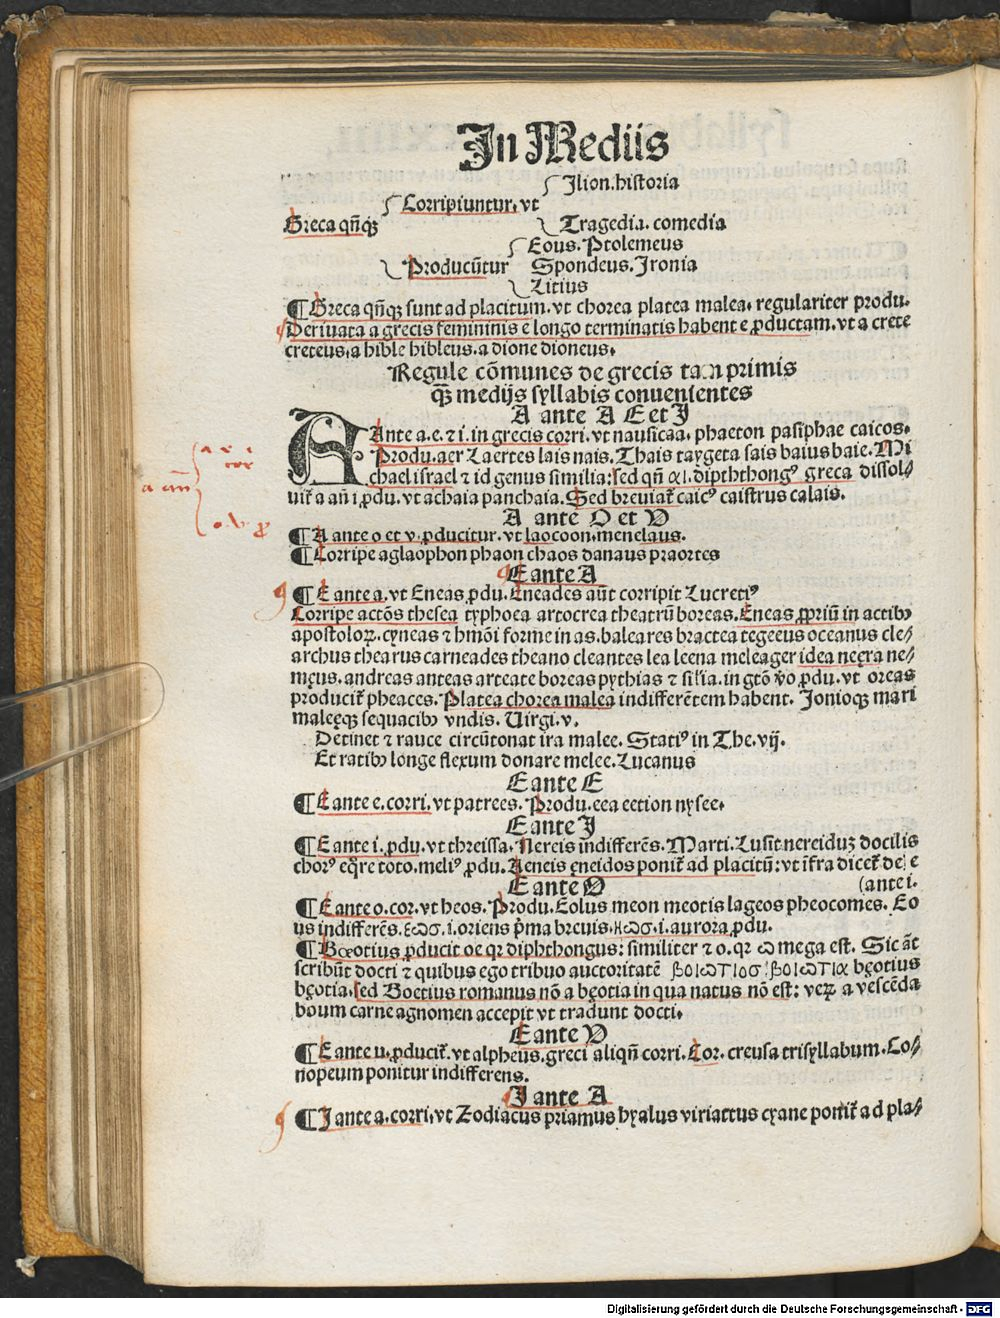 In Mediis
Ilion. historia
Corripiuntur. vt
Greca qñqꝫ
Tragedia. comedia
Eous. Ptolemeus
Producũtur Spondeus. Ironia
Litius
¶ Greca qñqꝫ sunt ad placitum. vt chorea platea malea. regulariter produ.
Deriuata a grecis femininis e longo terminatis habent e ꝓductam. vt a crete
creteus. a bible bibleus. a dione dioneus.
Regule cõmunes de grecis tam primis
qꝫ̃ medijs syllabis conuenientes
A ante A E et I
AAnte a. e. ⁊ i. in grecis corri. vt nausicaa. phaeton pasiphae caicos.
Produ. aer Laertes lais nais. Thais taygeta sais baius baie. Mi
chael israel ⁊ id genus similia: sed qñ αι. dipththongꝰ greca dissol⸗
uit̃ a añ i ꝓdu. vt achaia panchaia. Sed breuiat̃ caicꝰ caistrus calais.
A ante O et V
¶ A ante o et v. ꝓducitur. vt laocoon. menelaus.
¶ Corripe aglaophon phaon chaos danaus praortes
E ante A
¶ E ante a. vt Eneas ꝓdu. Eneades aũt corripit Lucretiꝰ
Corripe actõs thesea typhoea artocrea theatrũ boreas. Eneas ꝓpriũ in actibꝰ
apostoloꝝ. cyneas ⁊ hmõi forme in as. baleares bractea tegeeus oceanus cle⸗
archus thearus carneades theano cleantes lea leena meleager idea neęra ne⸗
męus. andreas anteas arteate boreas pythias ⁊ silia. in gtõ v̊o ꝓdu. vt oreas
producit̃ pheaces. Platea chorea malea indifferẽtem habent. Ionioqꝫ mari
maleęqꝫ sequacibꝰ vndis. Uirgi. v.
Detinet ⁊ rauce circũtonat ira malee. Statiꝰ in The. vij.
Et ratibꝰ longe flexum donare melee. Lucanus
E ante E
¶ E ante e. corri. vt patrees. Produ. eea eetion nysee.
E ante I
¶ E ante i. ꝓdu. vt threissa. Nereis indifferẽs. Marti. Lusit nereiduꝫ docilis
chorꝰ eq̃re toto. meliꝰ ꝓdu. Aeneis ęneidos ponit̃ ad placitũ: vt ĩfra dicet̃ de e
E ante O (ante i.
¶ E ante o. cor. vt heos. Produ. Eolus meon meotis lageos pheocomes. Eo
us indifferẽs. εωσ. i. oriens p̃ma breuis. ηωσ. i. aurora ꝓdu.
¶ Bœotius ꝓducit oe qꝛ diphthongus: similiter ⁊ o. qꝛ ω mega est. Sic aũt
scribũt docti ⁊ quibus ego tribuo auctoritatẽ βοιωτιοσ: βοιωτια bęotius
bęotia. sed Boetius romanus nõ a bęotia in qua natus nõ est: veꝝ a vescẽda
boum carne agnomen accepit vt tradunt docti.
E ante V
¶ E ante u. ꝓducit̃. vt alpheus. greci aliqñ corri. Cor. creusa trisyllabum. Co⸗
nopeum ponitur indifferens.
I ante A
¶ I ante a. corri. vt Zodiacus priamus hyalus viriattus cyane ponit̃ ad pla⸗
Digitalisierung gefördert durch die Deutsche Forschungsgemeinschaft - DFG